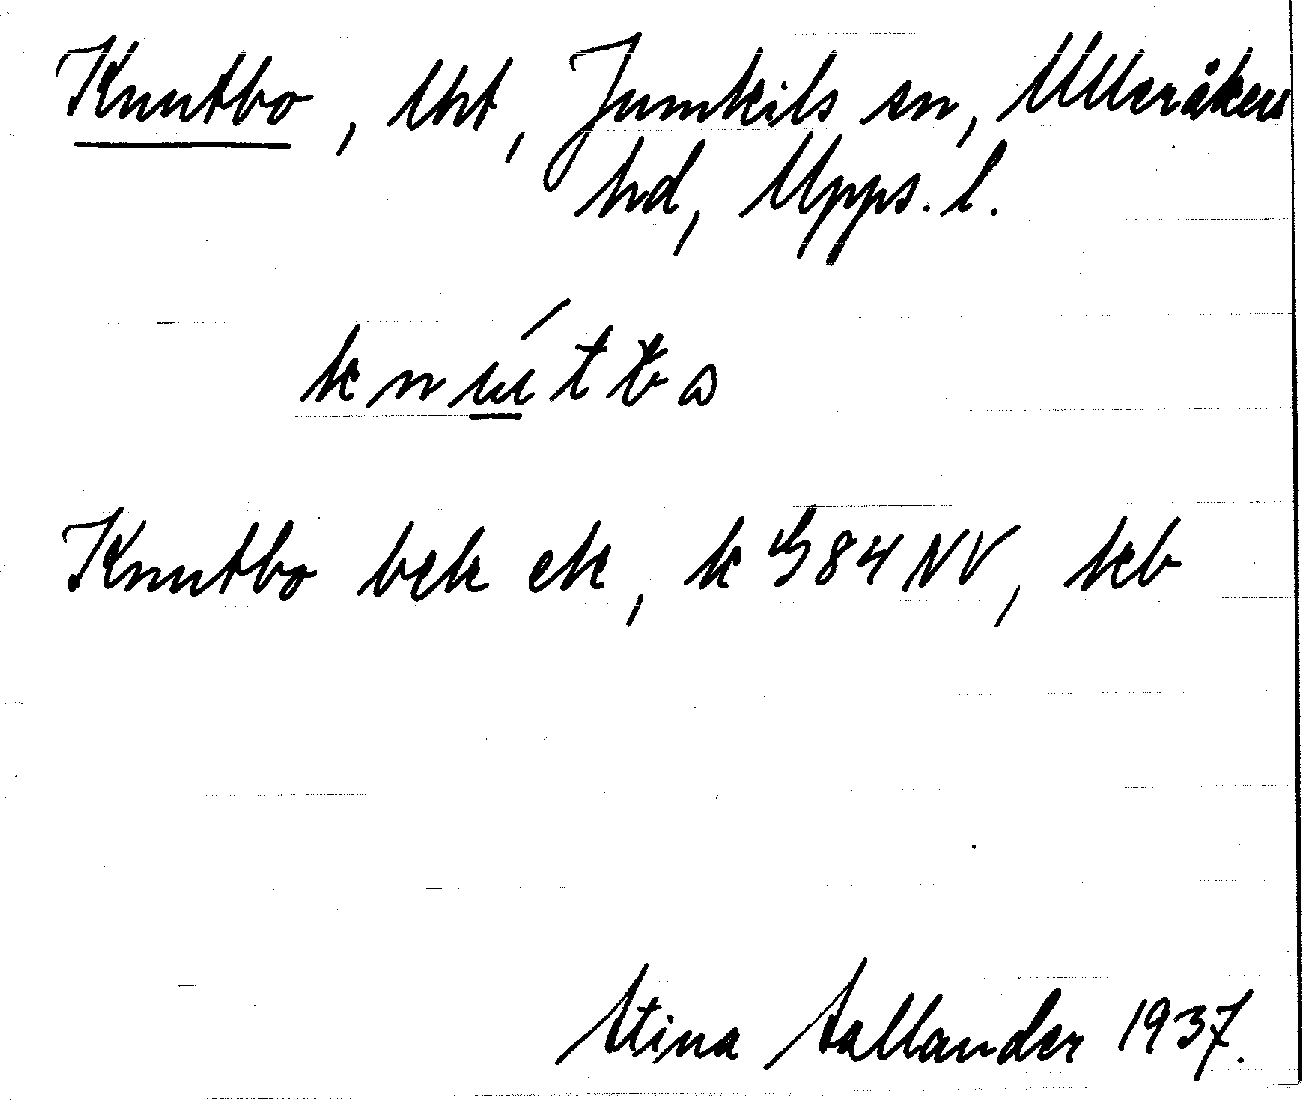 Knutbo, tht, Jumkils sn, Ulleråkers
hd, Upps. l.
knútbo
Knutbo bek ek, k G84NV, kb
Stina Sallander 1937.